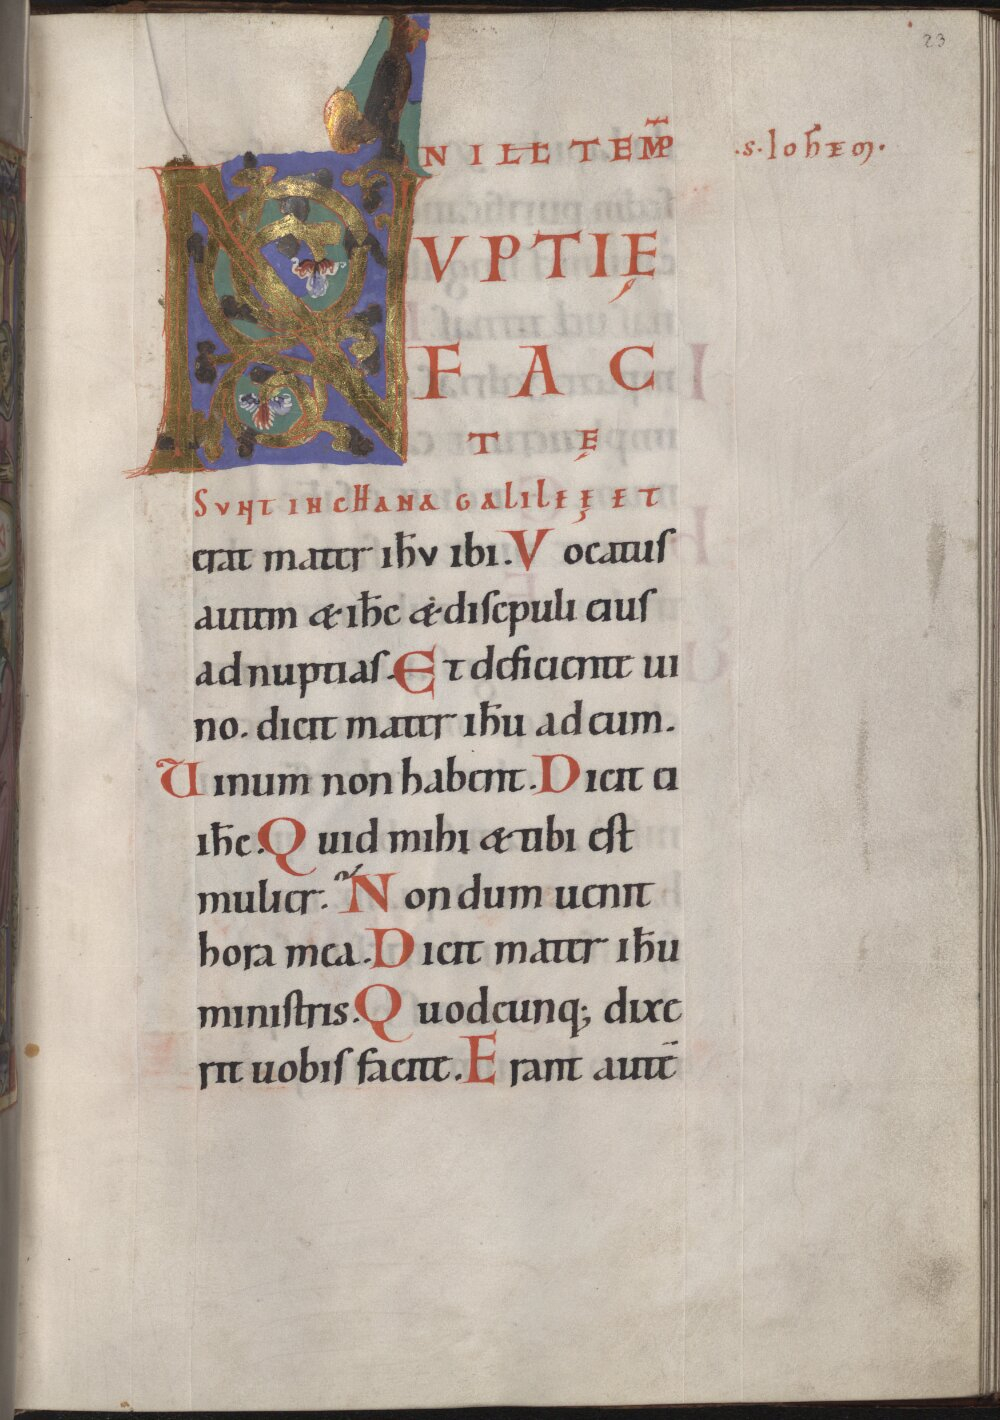 23
IN ILL TEMP̄ .S. Ioh̄em.
NVPTIĘ
FAC
TĘ
SVNT IN CHANA GALILEĘ ET
erat mater ih̄v ibi. Vocatus
autem & ih̄c & discpuli eius
ad nuptias. Et deficiente ui
no. dicit mater ih̄u ad eum.
Uinum non habent. Dicit ei
ih̄c. Quid mihi & tibi est
mulier. Nondum uenit
hora mea. Dicit mater ih̄u
ministris. Quodcunq; dixe
rit uobis facite. Erant autē